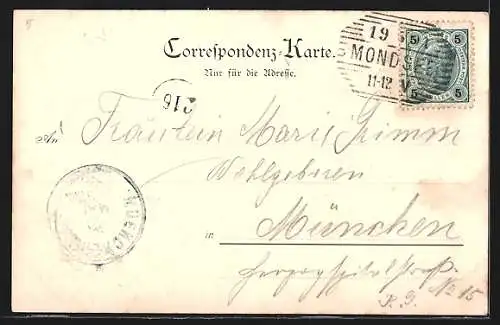 Correspondenz-Karte.
Nur für die Adresse.
19
MOND
11-12 V
5 5
5 5
216
An Fräulein Marie Grimm
Wohlgeboren
in München
Herzogspitalstraße
No 15